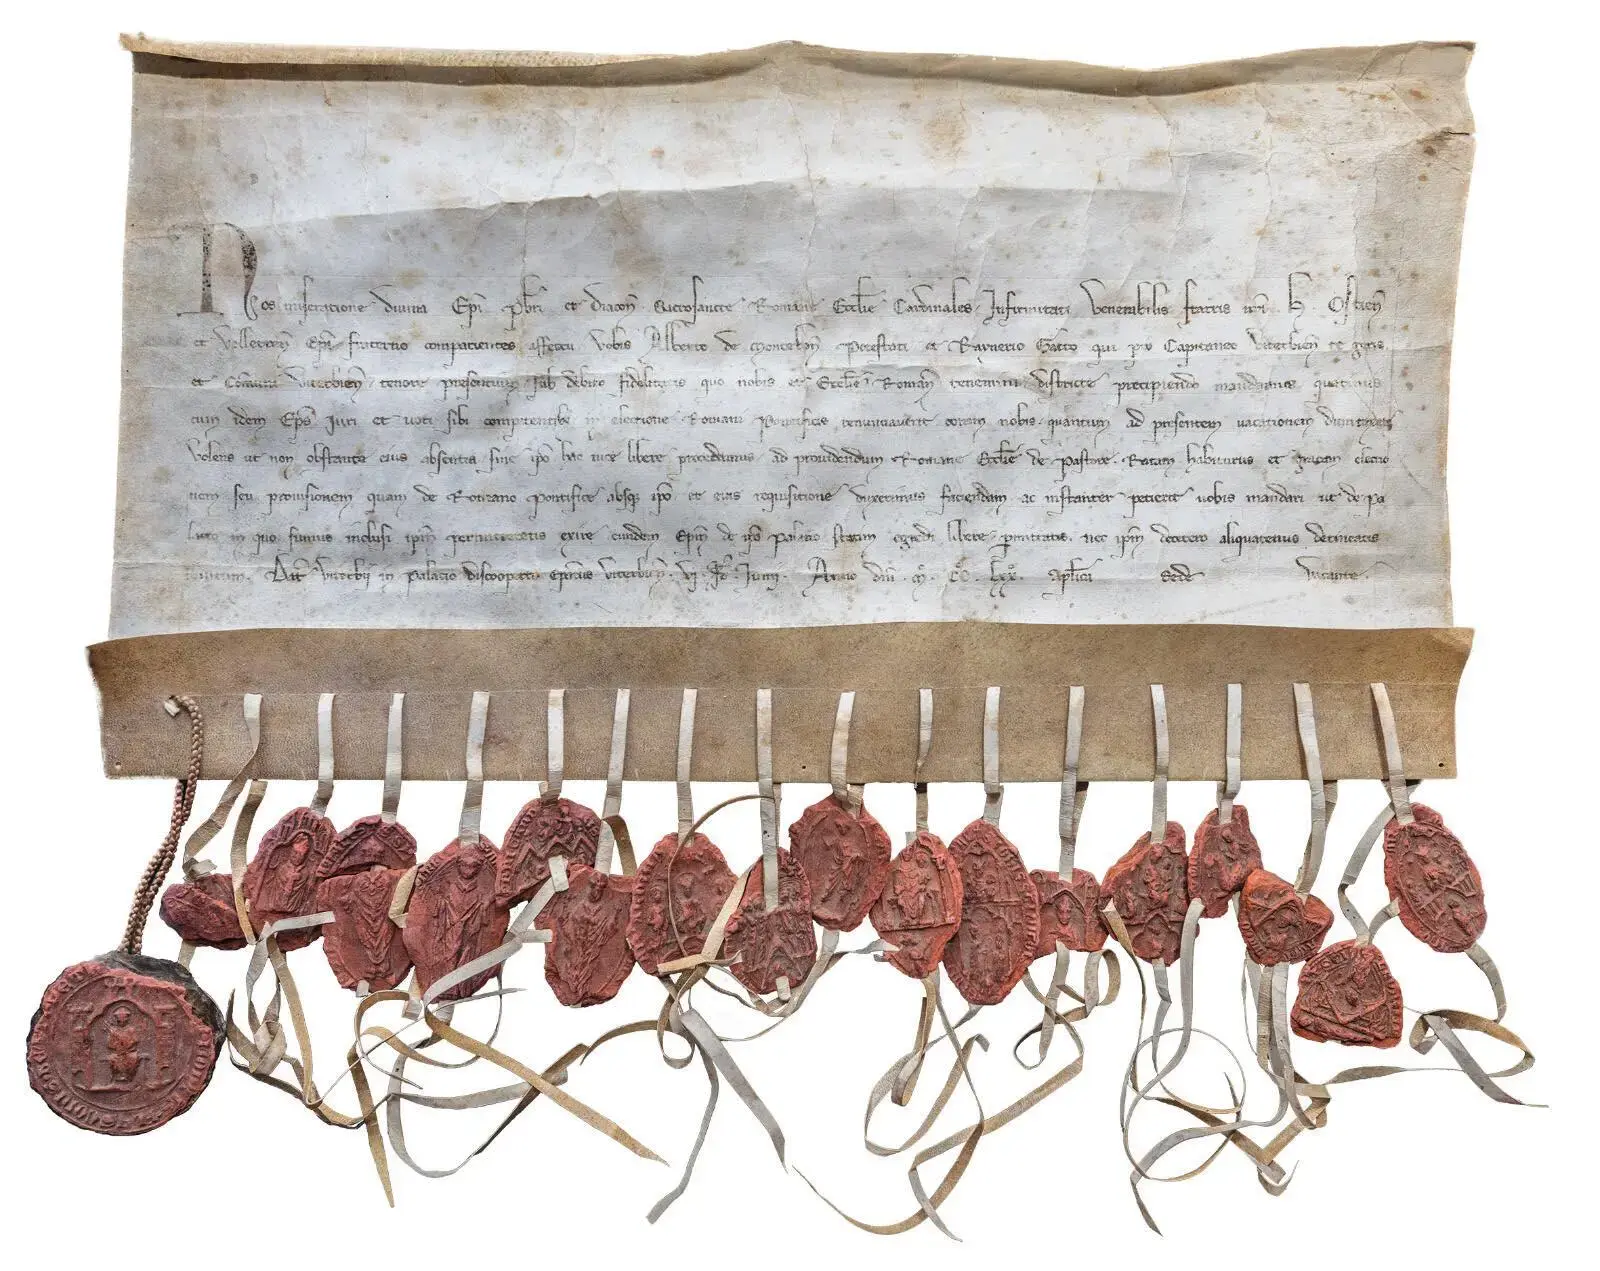 Nos miseratione divina Epi Pbri et Diacon Sacrosancte Romane Ecclie Cardinales Infirmitati Venerabilis fratris nri h. Ostien
et Velletren Epi fraterno compatientes affectu Vobis Alberto de Potestati et Raynerio Gatto qui pro Capitaneo Viterbien se gerit
et Comuni Viterbien tenore presentium sub debito fidelitatis quo nobis et Ecclie Roman tenemini districte precipiendo mandamus quatinus
cum idem Eps Iuri et voci sibi competentibus in electione Romani Pontificis renuntiaverit coram nobis quantum ad presentem vacationem dumtaxat
Volens ut non obstante eius absentia sine ipo hac vice libere procedamus ad providendum Romane Ecclie de Pastore. Ratam habiturus et gratam electio
nem seu provisionem quam de Romano Pontifice absq ipo et eius requisitione duxerimus faciendam ac instanter petierit vobis mandari ut de pa
latio in quo sumus inclusi ipm permitteretis exire eundem Epm de ipo Palatio statim egredi libere permittatis. nec ipm decetero aliquatenus detineatis
invitum. Dat Viterbii in Palatio discooperto Epatus Viterbien. vj. Id. Iunii. Anno dni. M. CC. Lxx. Aplica Sede vacante.